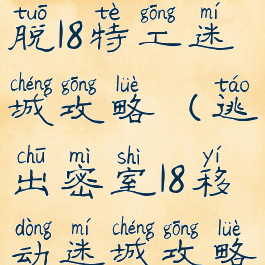 tuō tè gōng mí
脱18特工迷
chéng gōng lüè táo
城攻略(逃
chū mì shì yí
出密室18移
dòng mí chéng gōng lüè
动迷城攻略